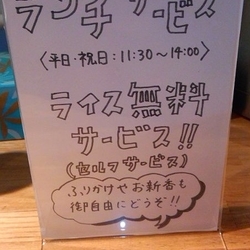 ランチサービス
〈平日・祝日:11:30～14:00〉
ライス無料
サービス!!
(セルフサービス)
ふりかけやお新香も
御自由にどうぞ!!